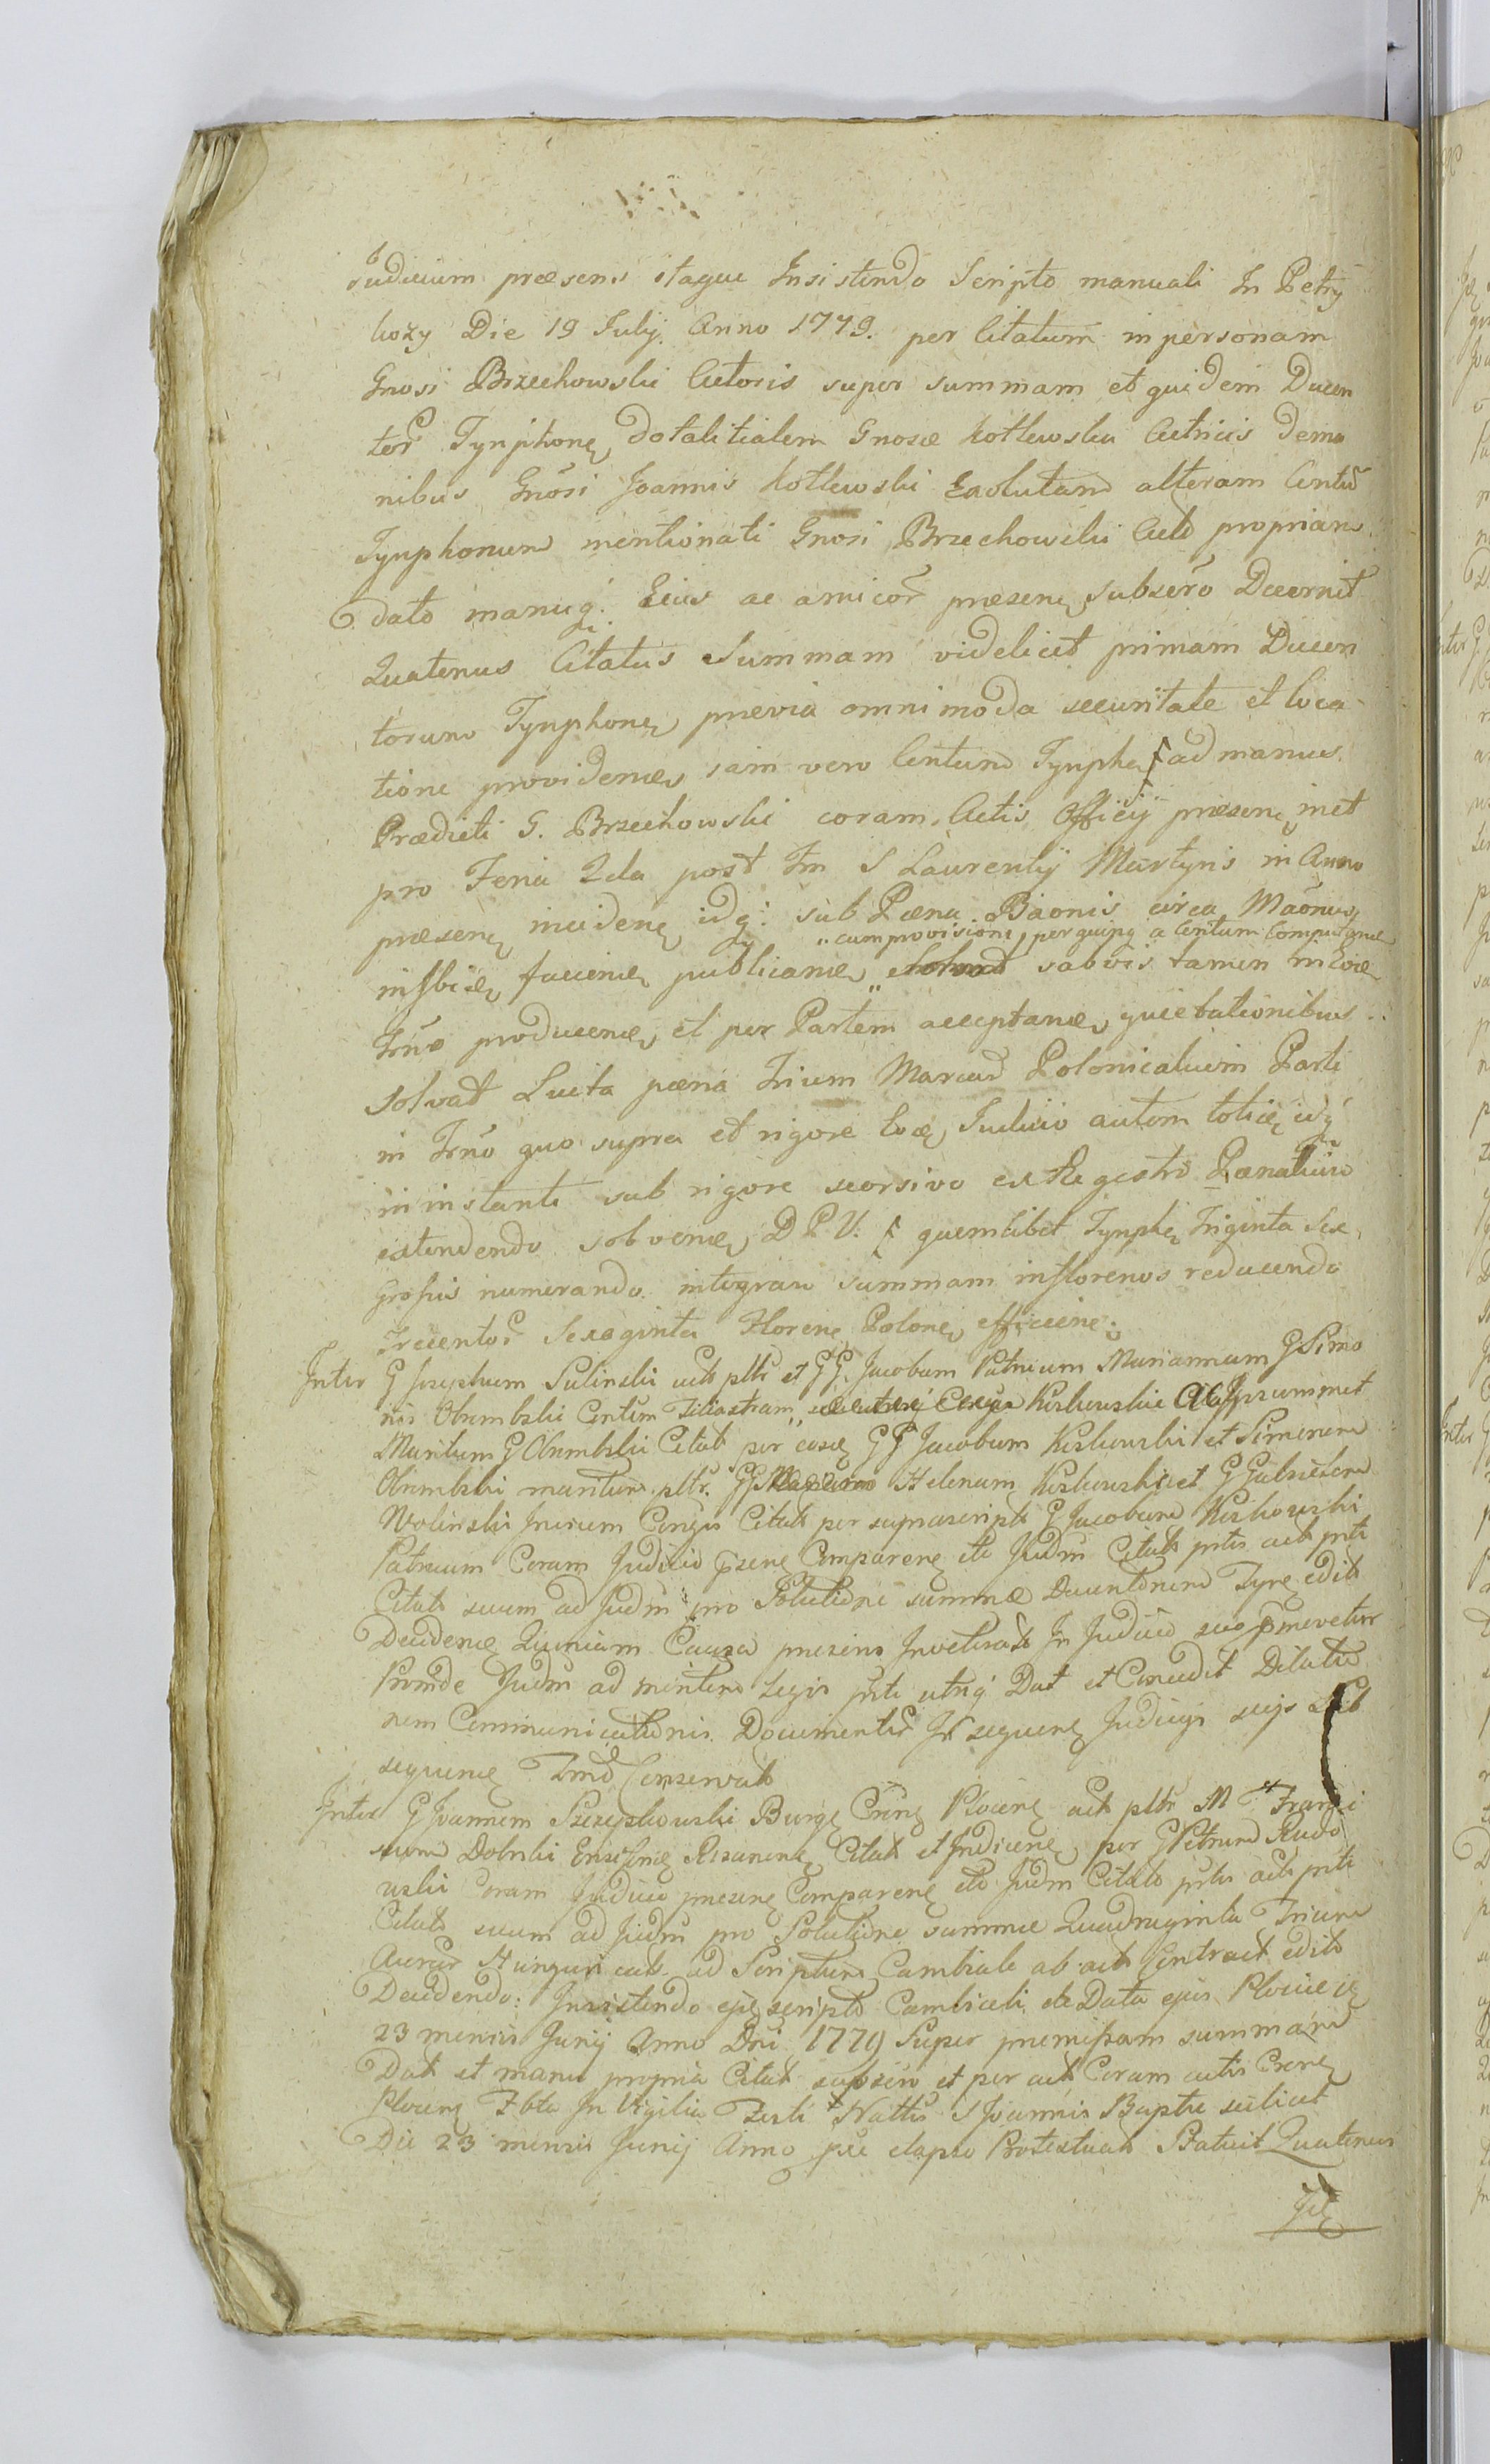 Judicium præsens itaque Insistendo Scripto manuali In Petry
kozy Die 19 July Anno 1779. per Citatum in personam
Gnosi Brzechowski Actoris super summam et quidem Ducen
tor Tynphonę dotalitialem Gnosæ Kotlewska Actricis de ma
nibus Gnosi Joannis Kotlewski Exolutam alteram Centu
Tynphonum mentionati Gnosi Brzechowski Act propriam
dato manuq Eius ac amicor præsenę subscro Decernit
Quatenus Citatus Summam videlicet primam Ducen
torum Tynphonę prævia omnimoda securitate et loca
tione providenę iam vero Centum Tynphę ad manus
Prædicti G. Brzechowski coram Actis Officij præsenę met
pro Feria 2da post Fm S Laurentij Martyris in Anno
præsenę incidenę idq: sub Pæna Baonis circa
„cum provisione per quinq a Centum Computanę
faciendę publicandę salvis tamen in
Trno producendę et per Partem acceptandę quietationibus
solvat Lucta pæna Trium Marcar Polonicalium Parti
in Trno quo supra et rigore Judicio autem toties idq
in instanti sub rigore seorsivo ex Regestro Pænalium
extendendo solvendę D P U. quemlibet Tynphę Triginta Sex
Grossis numerando integram summam in florenos reducendo
Trecentor Sexaginta Florenę Polonę efficienę.
Inter G Josephum Sulinski act pltr et GG. Jacobum Patruum Mariannam G Simo
nis Obrembski Filiastram Kiskowskie Ipsummet
Maritum G Obrembski Citat per eosdę GG Jacobum Kiskowski et Simonem
Obrembski maritum pltr. GG Helenam Kiskowskie et G Gabrielem
Wolinski Citat per suprascript G Jacobum Kiskowski
Patruum Coram Judicio præsenę Comparenę ite Judm Citat prtis act prti
Citat suum ad Judm pro Solutione summæ Ducentorum Tynę edit
Decidendę Quoniam Causa præsens In Judicio suo pmovetur
Proinde Judm ad mentem Legis prti utriq Dat et Concedit Dilatio
nem Communicationis Documentor In sequenę Judicys suis
sequenę Trmo Conservat
Inter G Joannem Szczepkowski Burgę Crenę Plocenę act pltr M Franci
scum Dolnski Ensifrę Citat et Indicenę per G Petrum Rudo
wski Coram Judicio præsenę Comparenę ite Judm Citat prtis act prti
Citat suum ad Judm pro Solutione summæ Quadraginta Trium
Auror Hungaricat. ad Scriptum Cambiale ab act Contract edit
Decidendo: Insistendo ejdę scripto Cambiali de Data ejus Plociæ
23 mensis Junij Anno Dni 1779 Super præmissam summam
Dat et manu propria Citat subscro et per act Coram actis Crenę
Plocenę Fbta In Vigilia Festi Nattis S Joannis Baptæ scilicet
Die 23 mensis Junij Anno pxe elapso Protestuat Statuit Quatenus